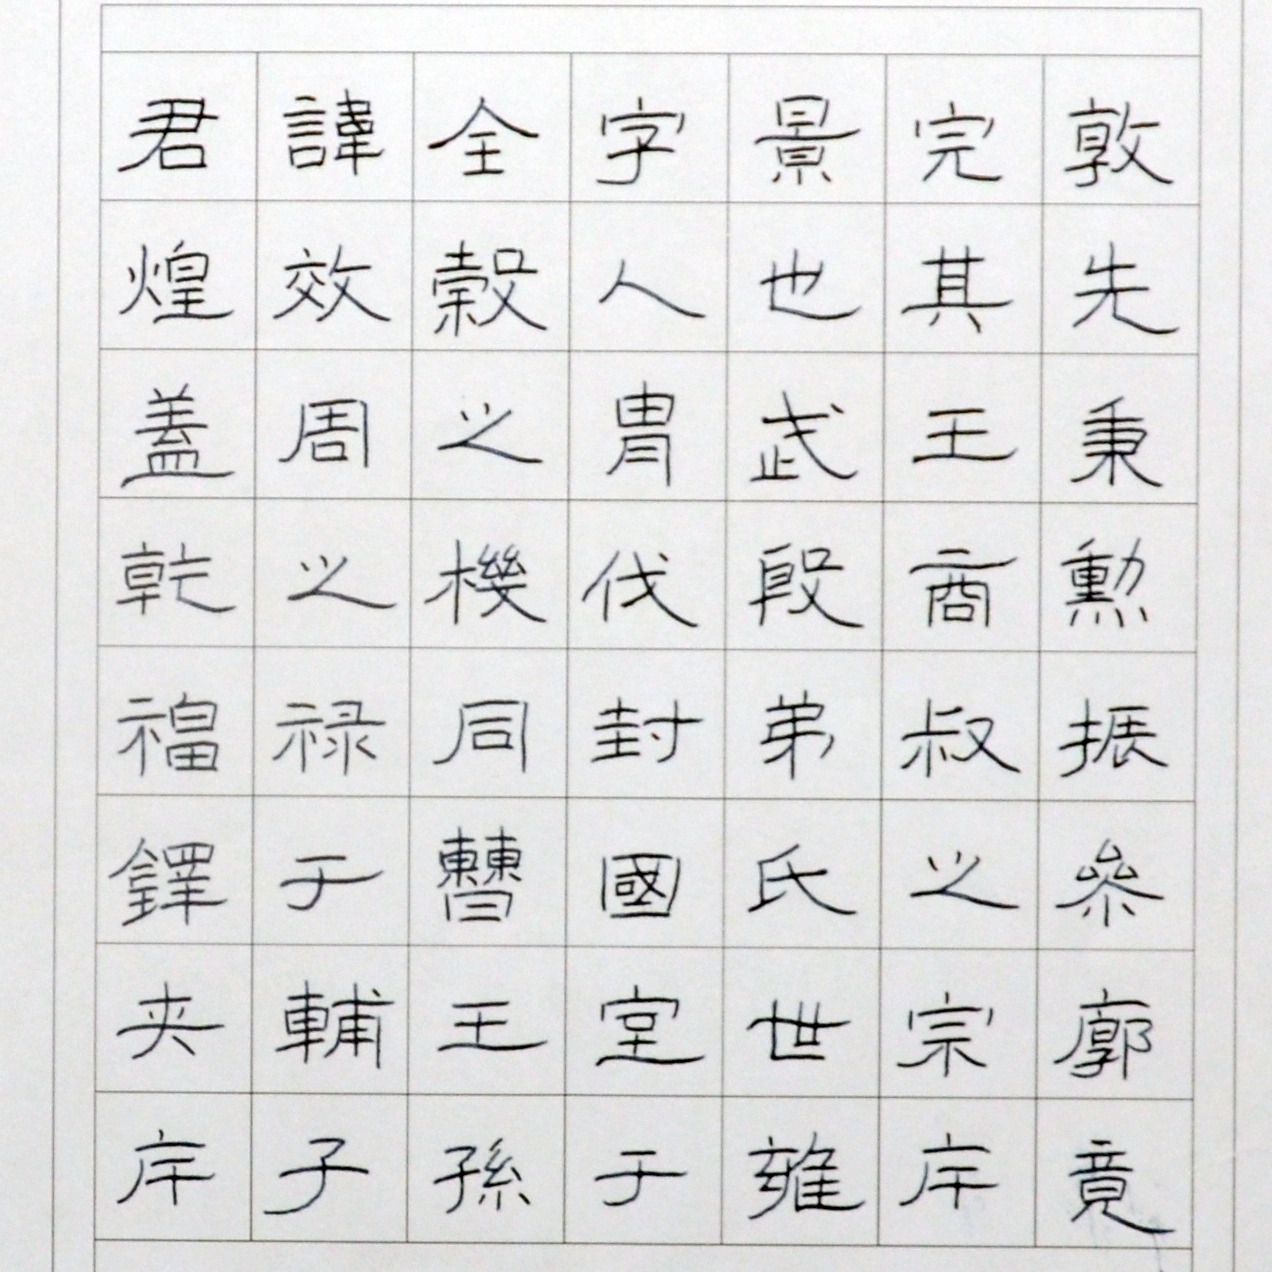 君諱全字景完敦
煌效穀人也其先
蓋周之胄武王秉
乾之機伐殷商勳
福祿同封弟叔振
鐸于曹國氏之叅
夾輔王室世宗廓
斥子孫于雍斥竟